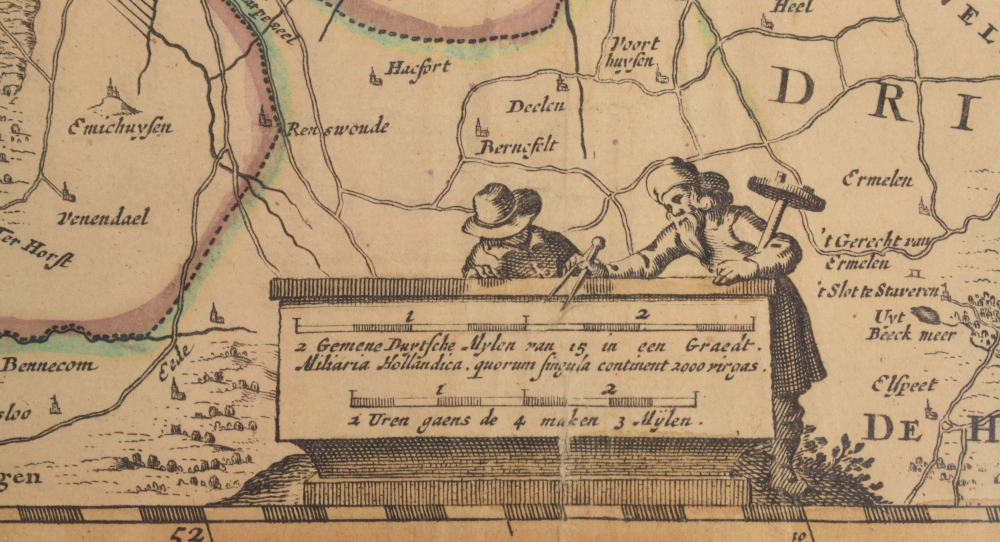 Heel
VEL
Voort
huysen
Hacfort
Deelen
Emichuysen
Renswoude
Bernefelt
D R I
Ermelen
Venendael
Ter Horst
't Gerecht van
Ermelen
't Slot te Staveren
Uyt
Beeck meer
1 2
2 Gemene Duytsche Mylen van 15 in een Graedt.
Miliaria Hollandica, quorum singula continent 2000 virgas.
Bennecom
Eede
Elspeet
1 2
2 Uren gaens de 4 maken 3 Mÿlen.
sloo
DE H
gen
52
10